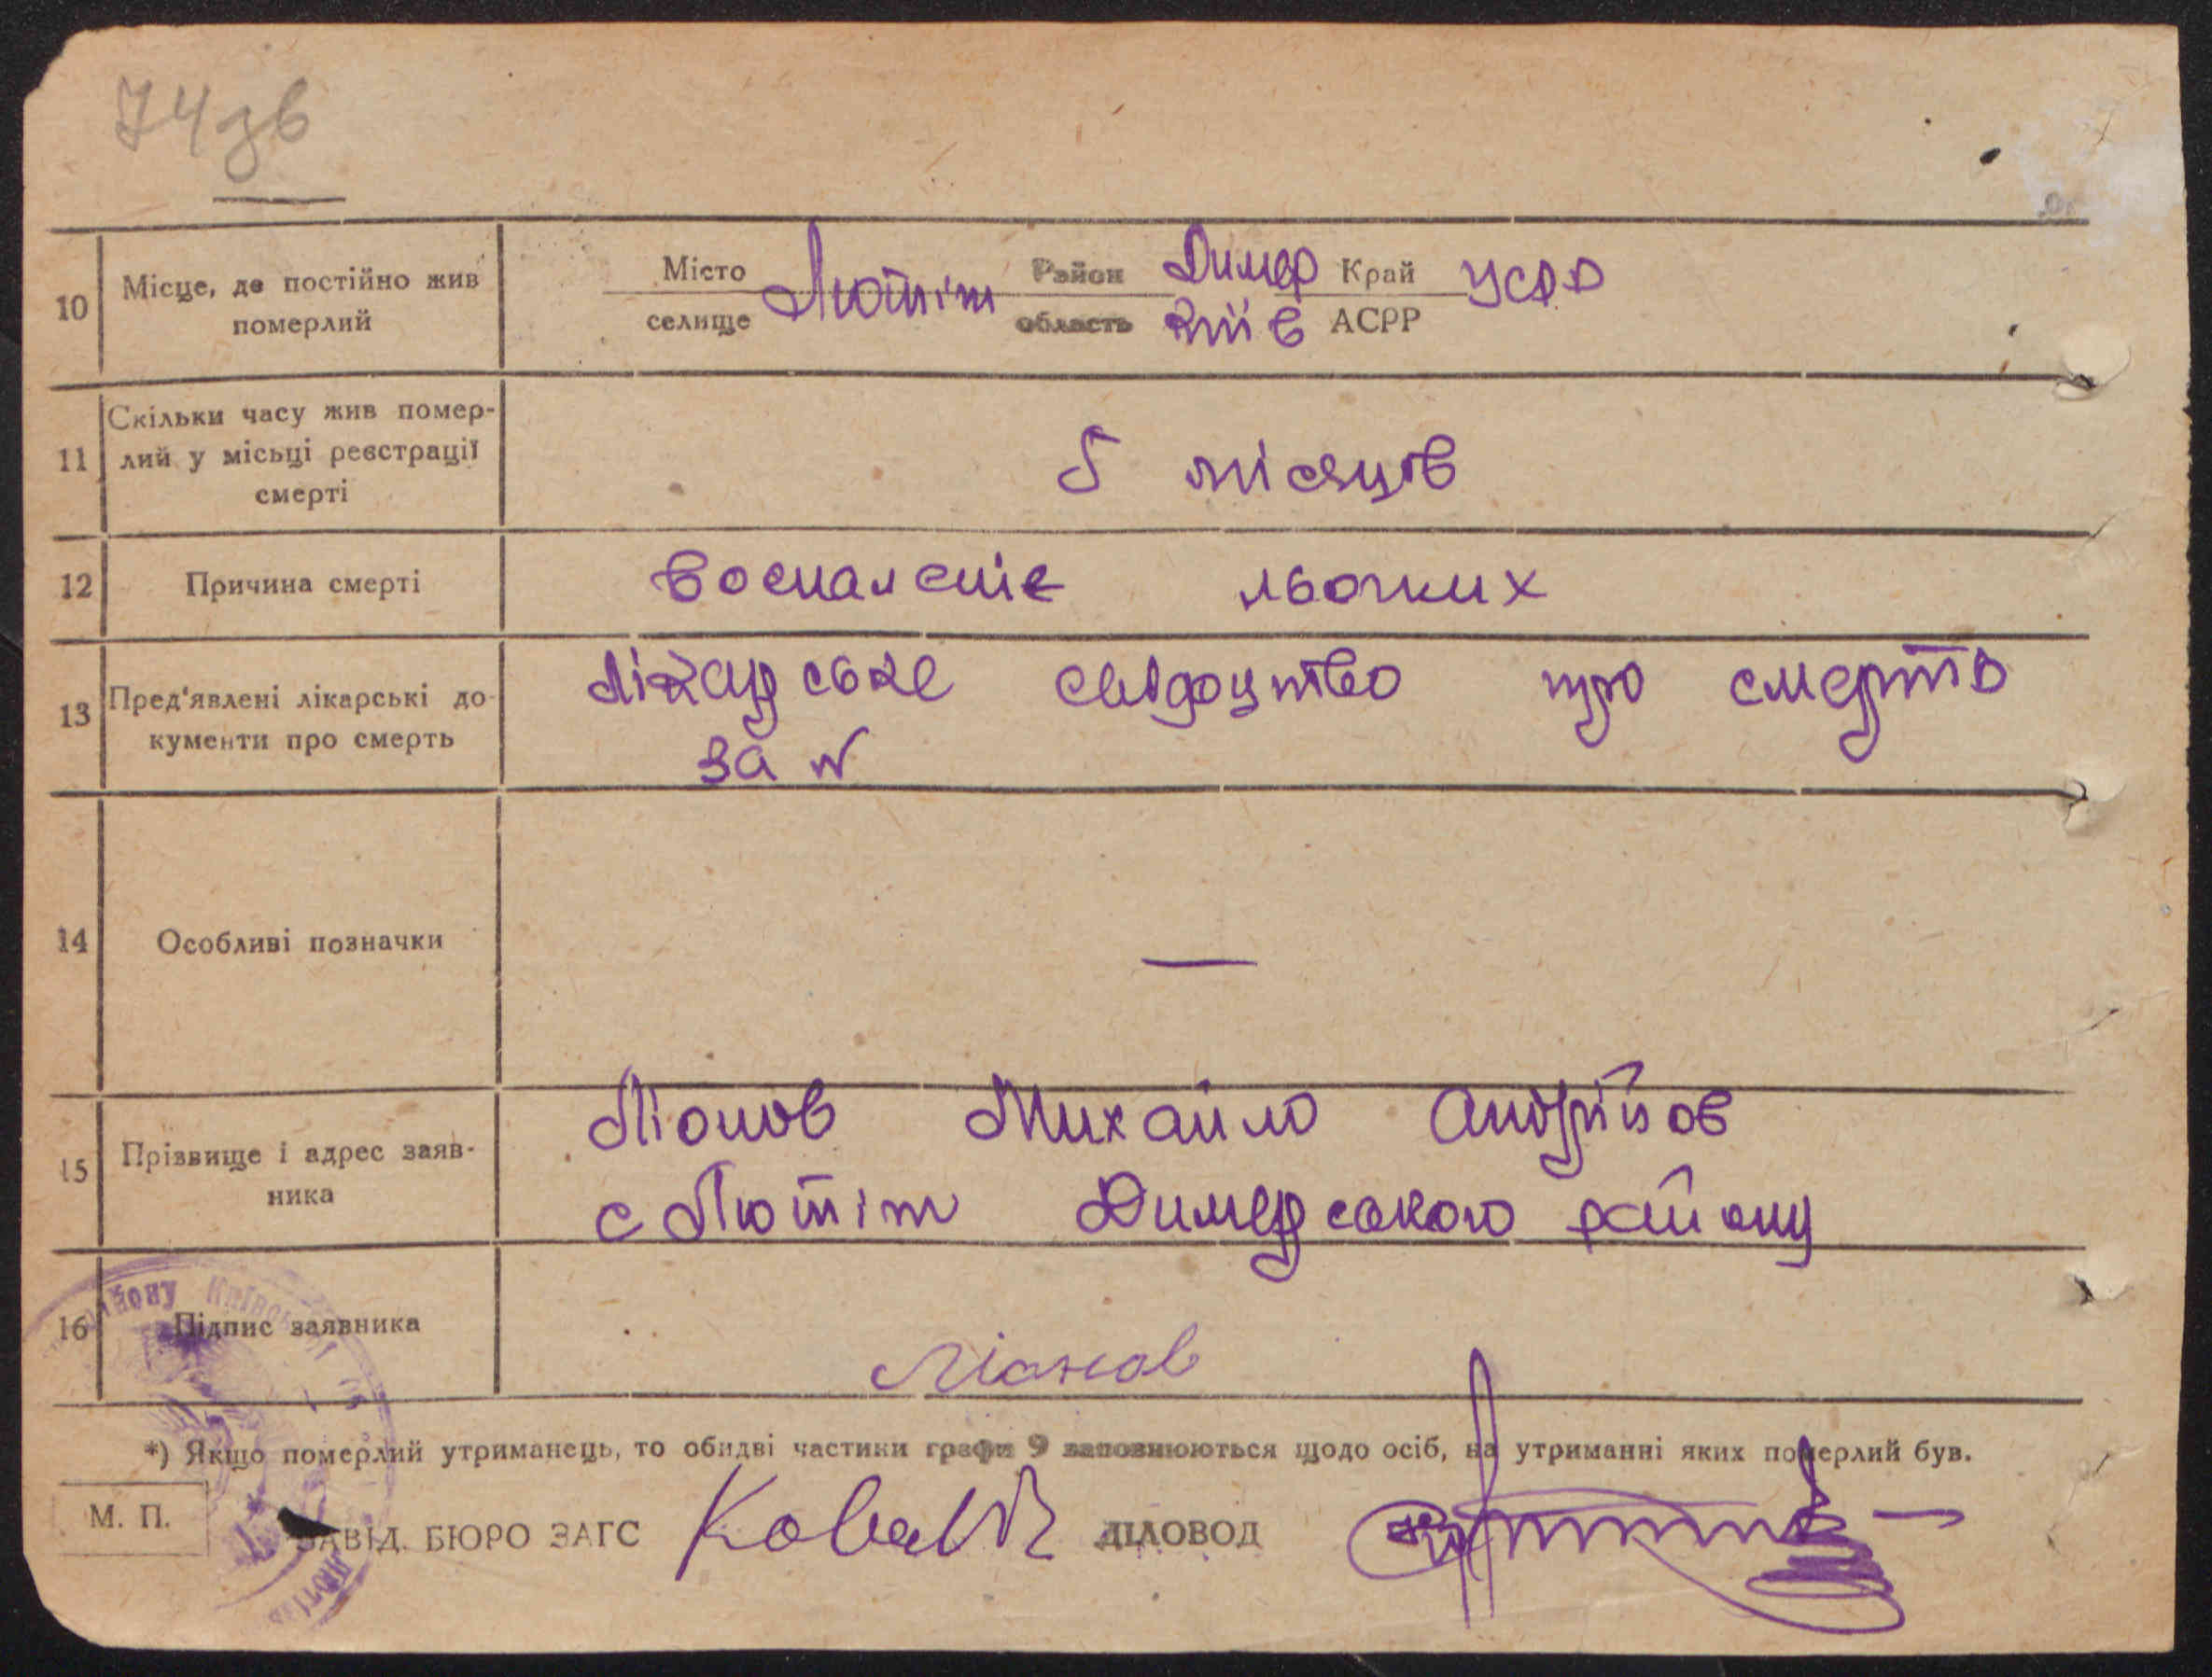 74зв
10 Місце, де постійно жив померлий Місто селище Лютіт Район область Димер Київ Край АСРР УСРР
11 Скільки часу жив помер-
лий у місьці реєстрації
смерті
5 місяців
12 Причина смерті воспаленіє льогких
13 Пред'явлені лікарські до-
кументи про смерть
Лікарське свідоцтво про смерть
за №
14 Особливі позначки —
15 Прізвище і адрес заяв-
ника
Ліонов Михайло Андрійов
с Лютіт Димерського району
16 Підпис заявника Ліонов
*) Якщо померлий утриманець, то обидві частини графи 9 заповнюються щодо осіб, на утриманні яких померлий був.
М. П. ЗАВІД. БЮРО ЗАГС ДІЛОВОД